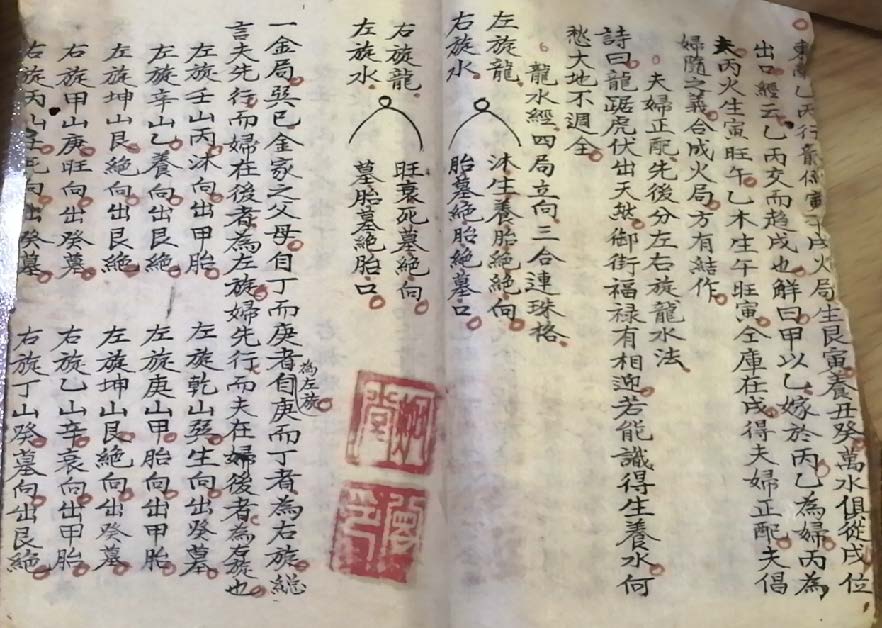 東南乙丙行龍作寅午戌火局生艮寅養丑癸萬水俱從戌位
出口經云乙丙交而趨戌也鮮曰甲以乙嫁於丙乙為婦丙為
夫丙火生寅旺午乙木生午旺寅仝庫在戌得夫婦正配夫倡
婦隨之義合成火局方有結作
夫婦正配先後分左右旋龍水法
詩曰龍踞虎伏出天然御街福禄有相迎若能識得生養水何
愁大地不週全
龍水經四局立向三合連珠格
左旋龍 沐生養胎絕絕向
右旋水 胎墓絕胎絕墓口
右旋龍 旺衰死墓絕向
左旋水 墓胎墓絕胎口
一金局巽巳金家之父母自丁而庚者為左旋自庚而丁者為右旋總
言夫先行而婦在後者為左旋婦先行而夫在婦後者為右旋也
左旋壬山丙沐向出甲胎 左旋乾山巽生向出癸墓
左旋辛山乙養向出艮絕 左旋庚山甲胎向出甲胎
左旋坤山艮絕向出艮絕 左旋坤山艮絕向出癸墓
右旋甲山庚旺向出癸墓 右旋乙山辛衰向出甲胎
右旋丙山壬死向出癸墓 右旋丁山癸墓向出艮絕